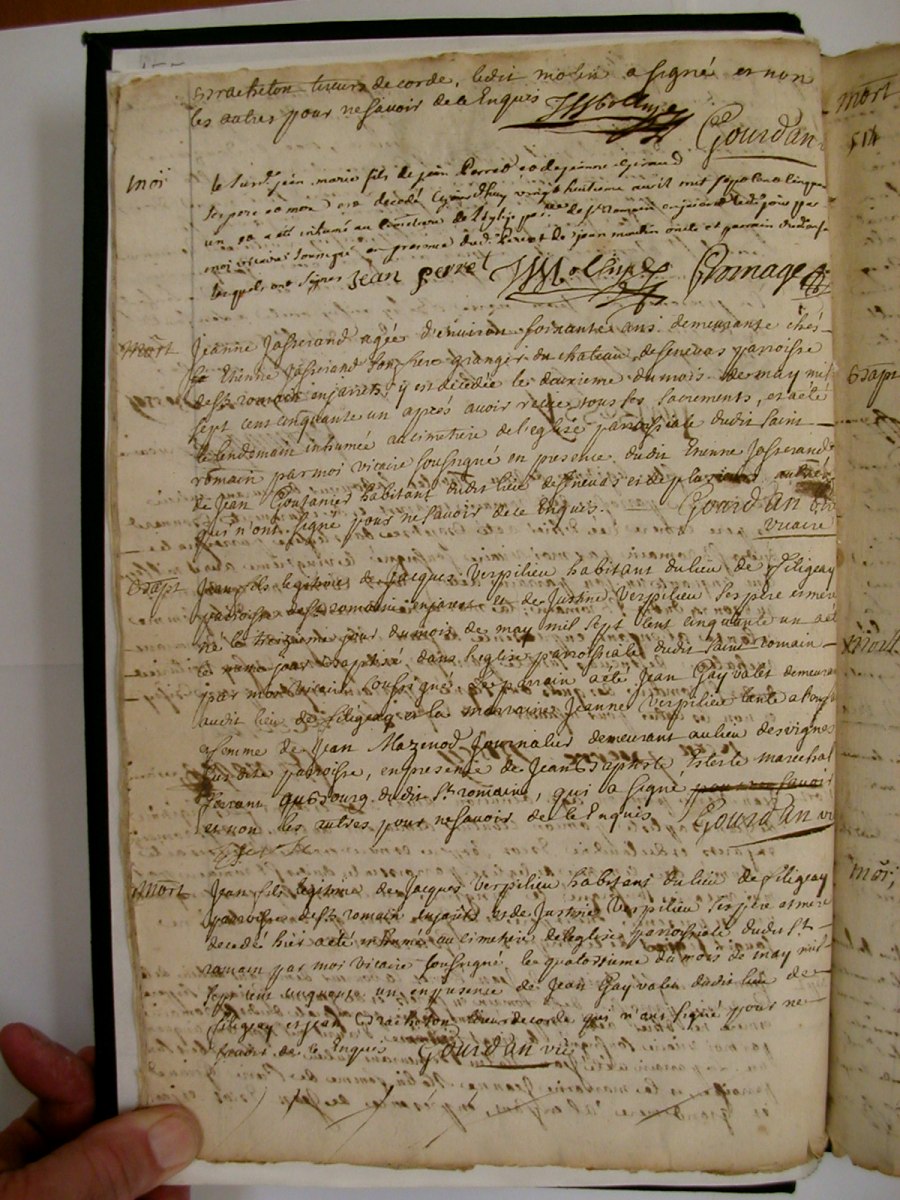 Bracheton tireurs de corde, ledit molin a signé et non
les autres pour ne savoir de ce Enquis
Gourdan
mort
le susd. jean marie fils de jean Perret et de jeanne
ses pere et mere est decedé ce jourdhuy vingt huitieme avril mil sept cent cinquante
un et a été inhumé au cimetiere de l'eglise de St romain en jarest par
moi vicaire soussigné en presence dudit Perret de jean moulin oncle et parrain
lesquels ont signés jean perret fromage
mort
Jeanne Jasserand agée d'environ soixante ans demeurante chés
Etienne Jasserand son frere granger du chateau de senevas parroisse
de St romain enjarets, y est decedée le deuxieme du mois de may mil
sept cent cinquante un aprés avoir recue tous les sacrements, et a été
le lendemain inhumée au cimetiere de l'eglise parroissiale dudit saint
romain par moi vicaire soussigné en presence dudit Etienne Jasserand
de Jean habitant dudit lieu de senevas et de plusieurs autres
qui n'ont signé pour ne savoir de ce Enquis. Gourdan
vicaire
Bapt
Jean fils legitime de Jacques Verpilieu habitant du lieu de filigeay
parroisse de St romain enjarest et de Justine Verpilieu ses pere et mere
né le treizieme jour du mois de may mil sept cent cinquante un a été
le meme jour baptisé dans l'eglise parroissiale dudit saint romain
par moi vicaire soussigné, le parrain a été Jean Gayvalet demeurant
audit lieu de filigeay et la marraine Jeanne Verpilieu tante
femme de Jean Mazenod Journalier demeurant au lieu des vignes
susdite parroisse, en presence de Jean Baptiste marechal
ferrant au Bourg dudit St romain, qui a signé pour ne savoir
et non les autres pour ne savoir de ce Enquis Gourdan
mort
Jean fils legitime de Jacques Verpilieu habitant du lieu de filigeay
parroisse de St romain enjarest et de Justine Verpilieu ses pere et mere
decedé hier a été inhumé au cimetiere de l'eglise parroissiale dudit St
romain par moi vicaire soussigné le quatorzieme du mois de may mil
sept cent cinquante un en presence de Jean Gayvalet dudit lieu de
filigeay et jean Bracheton tireur de corde qui n'ont signé pour ne
savoir de ce Enquis Gourdan vic
mort
514
Bapt
mort
mort